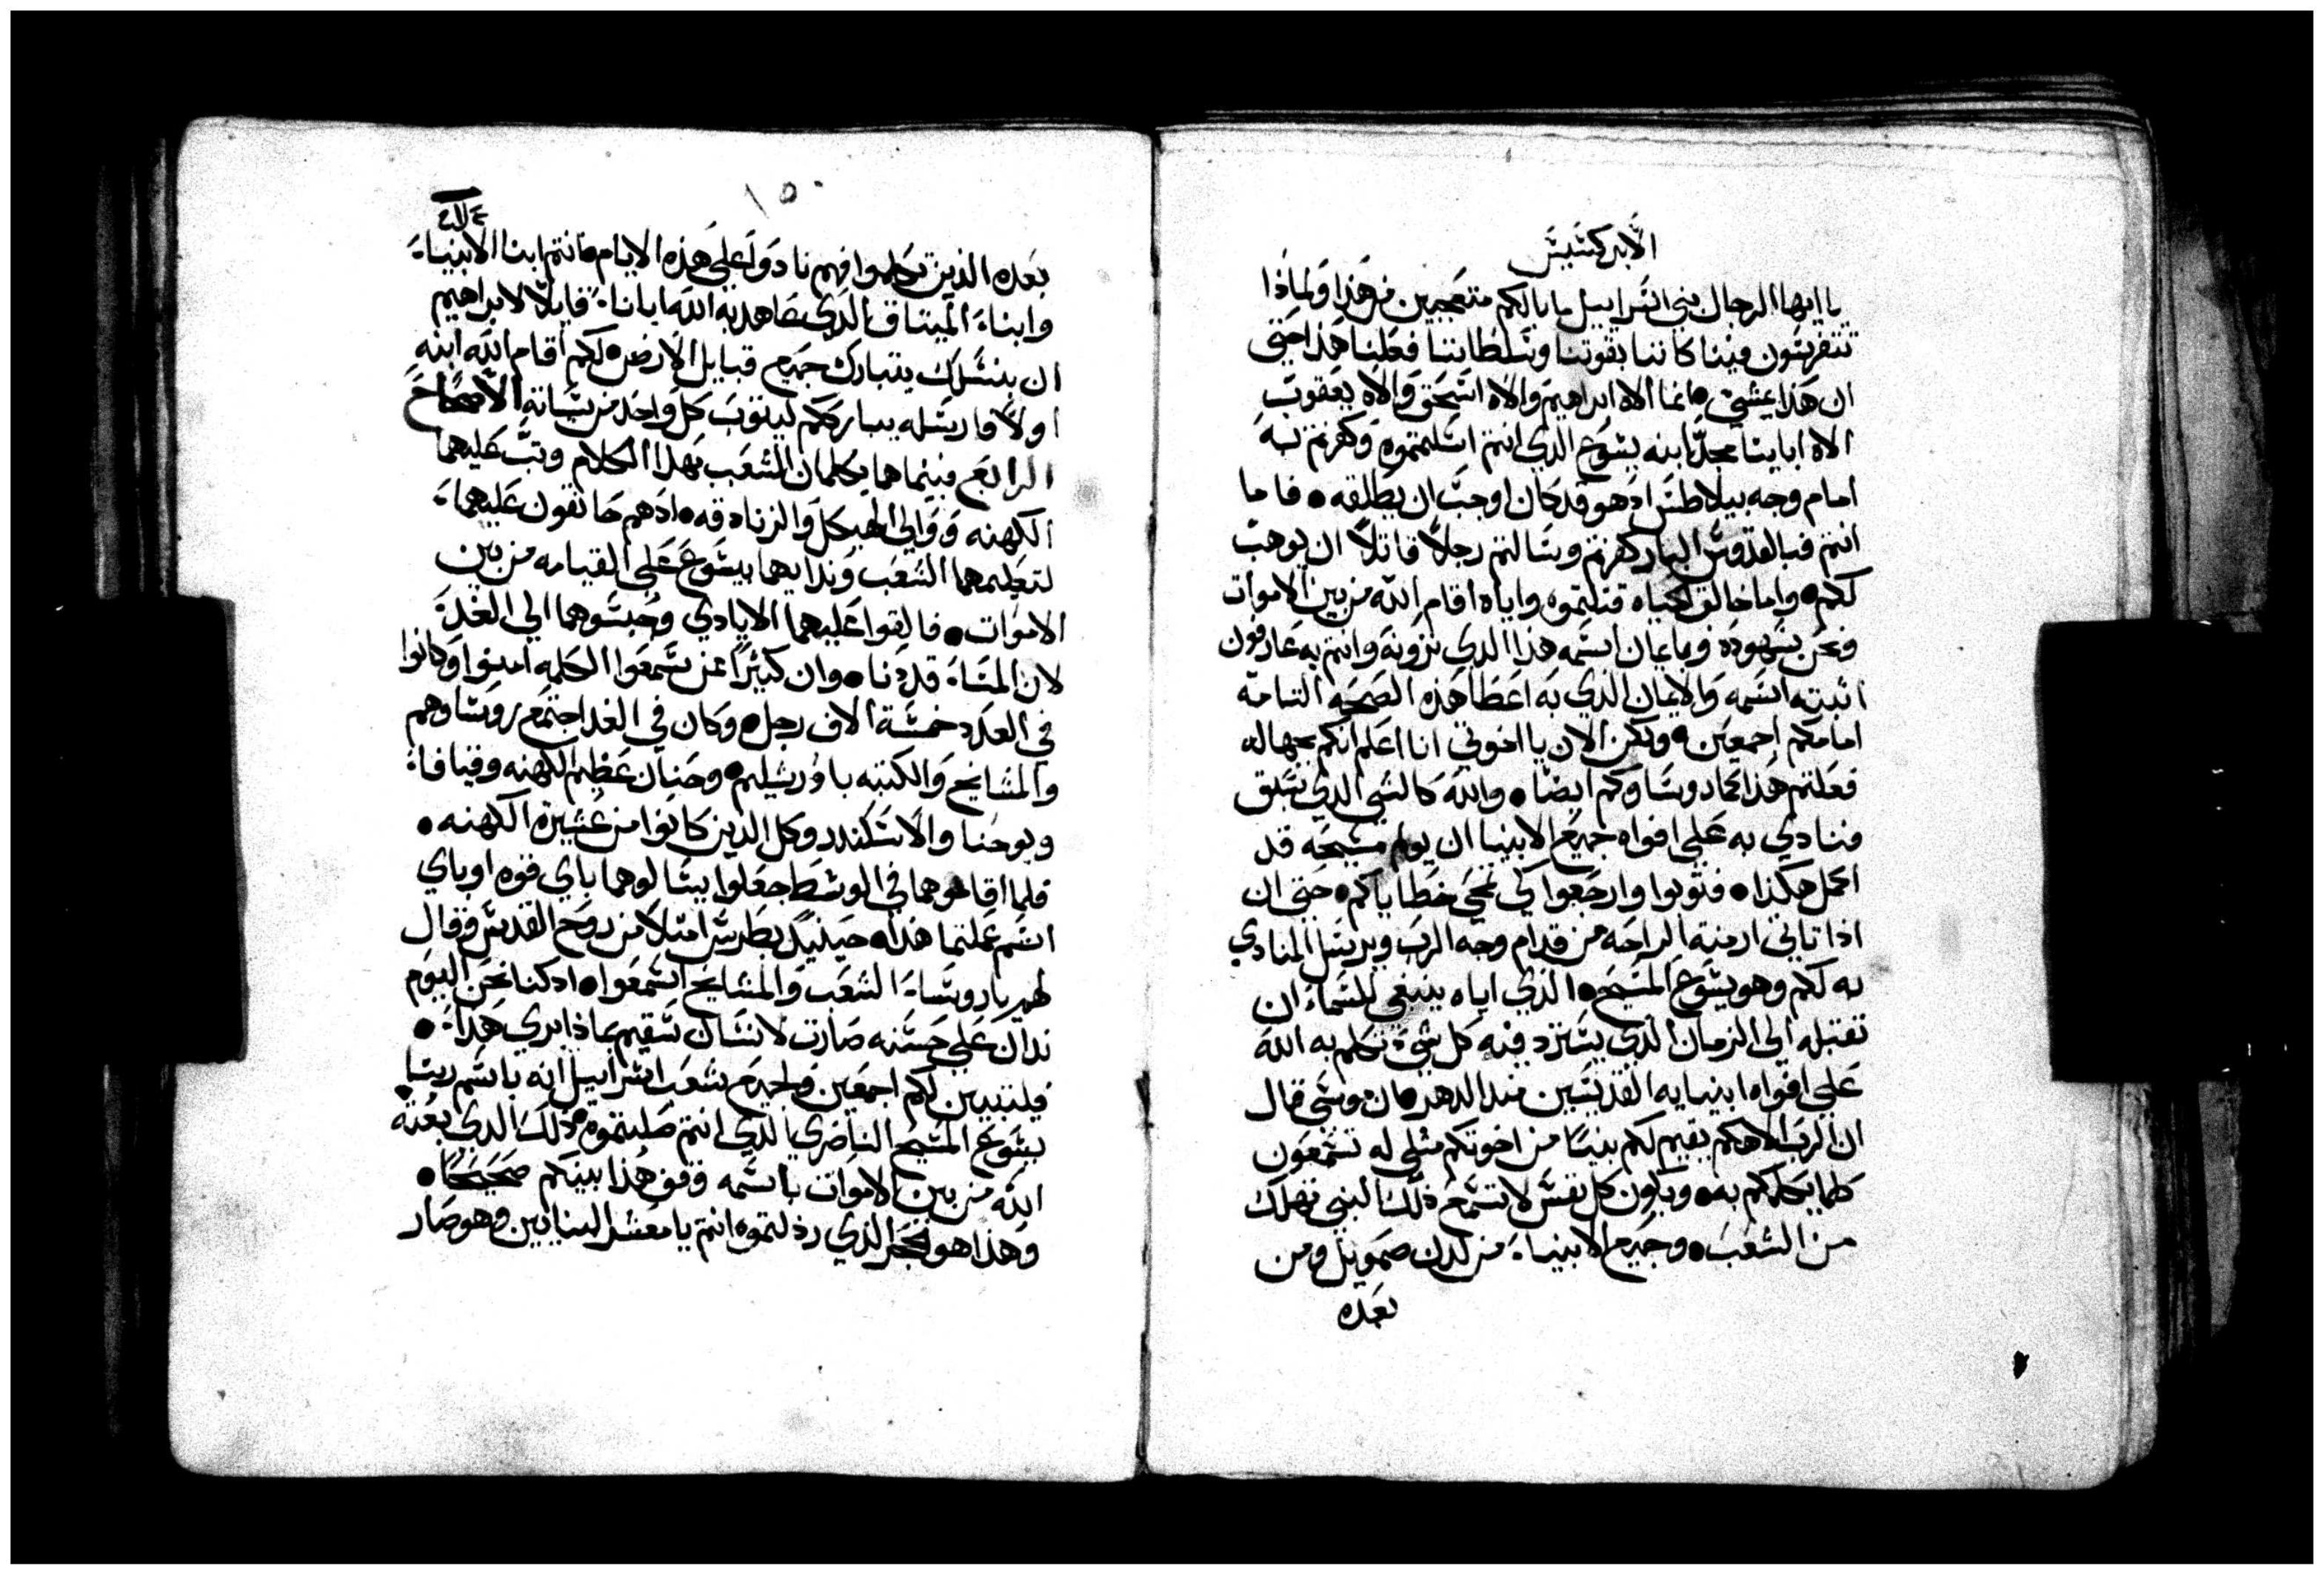 الابركسيس
يا ايها الرجال بني اسراييل ما بالكم متعجبين من هذا ولماذا
تتفرسون فينا كاننا بقوتنا وسلطاننا فعلنا هذا حتي
ان هذا يمشي • انما الاه ابراهيم والاه اسحق والاه يعقوب
الاه اباينا مجد ابنه يسوع الدي انتم اسلمتموه وكفرتم به
امام وجه بيلاطس اد هو قد كان اوجب ان يطلقه • فاما
انتم فبالقدوس البار كفرتم وسالتم رجلاً قاتلاً ان يوهب
لكم • واما خالق الحياه قتلتموه واياه اقام الله من بين الاموات
ونحن شهوده وبايمان اسمه هذا الدي ترونه وانتم به عارفون
اثبته اسمه والايمان الذي به اعطا هذه الصحه التامه
امامكم اجمعين • ولكن الان يا اخوتي انا اعلم انكم بجهاله
فعلتم هذا كما روساوكم ايضا • والله كالشي الدي سبق
فنادي به علي افواه جميع الانبيا ان يولم مسيحه قد
اكمل هكذا • فتوبوا وارجعوا لكي تمحي خطاياكم • حتي ان
اذا تاتي ازمنة الراحه من قدام وجه الرب ويرسل المنادي
به لكم وهو يسوع المسيح • الذي اياه ينبغي للسماء ان
تقبله الي الزمان الذي يسترد فيه كل شيء تكلم به الله
علي افواه انبيايه القديسين مند الدهر • ان موسي قال
ان الرب الاهكم يقيم لكم نبيًا من اخوتكم مثلي له تسمعون
كلما يكلمكم به • ويكون كل نفس لا تسمع ذلك النبي تهلك
من الشعب • وجميع الانبياء من لدن صمويل ومن
بعده
١٥٠
بعده الذين تكلموا فهم نادوا علي هذه الايام فانتم ابنا الانبياء
وابناء الميتاق الذي عاهد به الله ابانا قايلاً لابراهيم
ان بنسلك يتبارك جميع قبايل الارض • لكم اقام الله ابنه
اولاً وارسله يبارككم ليتوب كل واحد من سياته الاصحاح
الرابع فبينما هما يكلمان الشعب بهذا الكلام وتب عليهما
الكهنه ووالي الهيكل والزنادقه • اد هم حانقون عليهما
لتعليمهما الشعب وندايهما بيسوع علي القيامه من بين
الاموات • فالقوا عليهما الايادي وحبسوهما الي الغد
لان المساء قد دنا • وان كثيرًا ممن سمعوا الكلمه امنوا وكانوا
في العدد خمسة الاف رجل • وكان في الغد اجتمع روساوهم
والمشايخ والكتبه باورشليم • وحنان عظيم الكهنه وقيافا
ويوحنا والاسكندر وكل الذين كانوا من عشيرة الكهنه •
فلما اقاموهما في الوسط جعلوا يسالوهما باي قوه او باي
اسم عملتما هذا • حينيد بطرس امتلا من روح القدس وقال
لهم يا روساء الشعب والمشايخ اسمعوا • اد كنا نحن اليوم
ندان علي حسنه صارت لانسان سقيم بماذا بري هدا •
فليتبين لكم اجمعين ولجميع شعب اسراييل انه باسم ربنا
يسوع المسيح الناصري الذي انتم صلبتموه • ذلك الدي بعثه
الله من بين الاموات باسمه وقف هذا بينكم صحيحًا •
وهذا هو الحجر الذي رذلتموه انتم يا معشر البنايين وهو صار